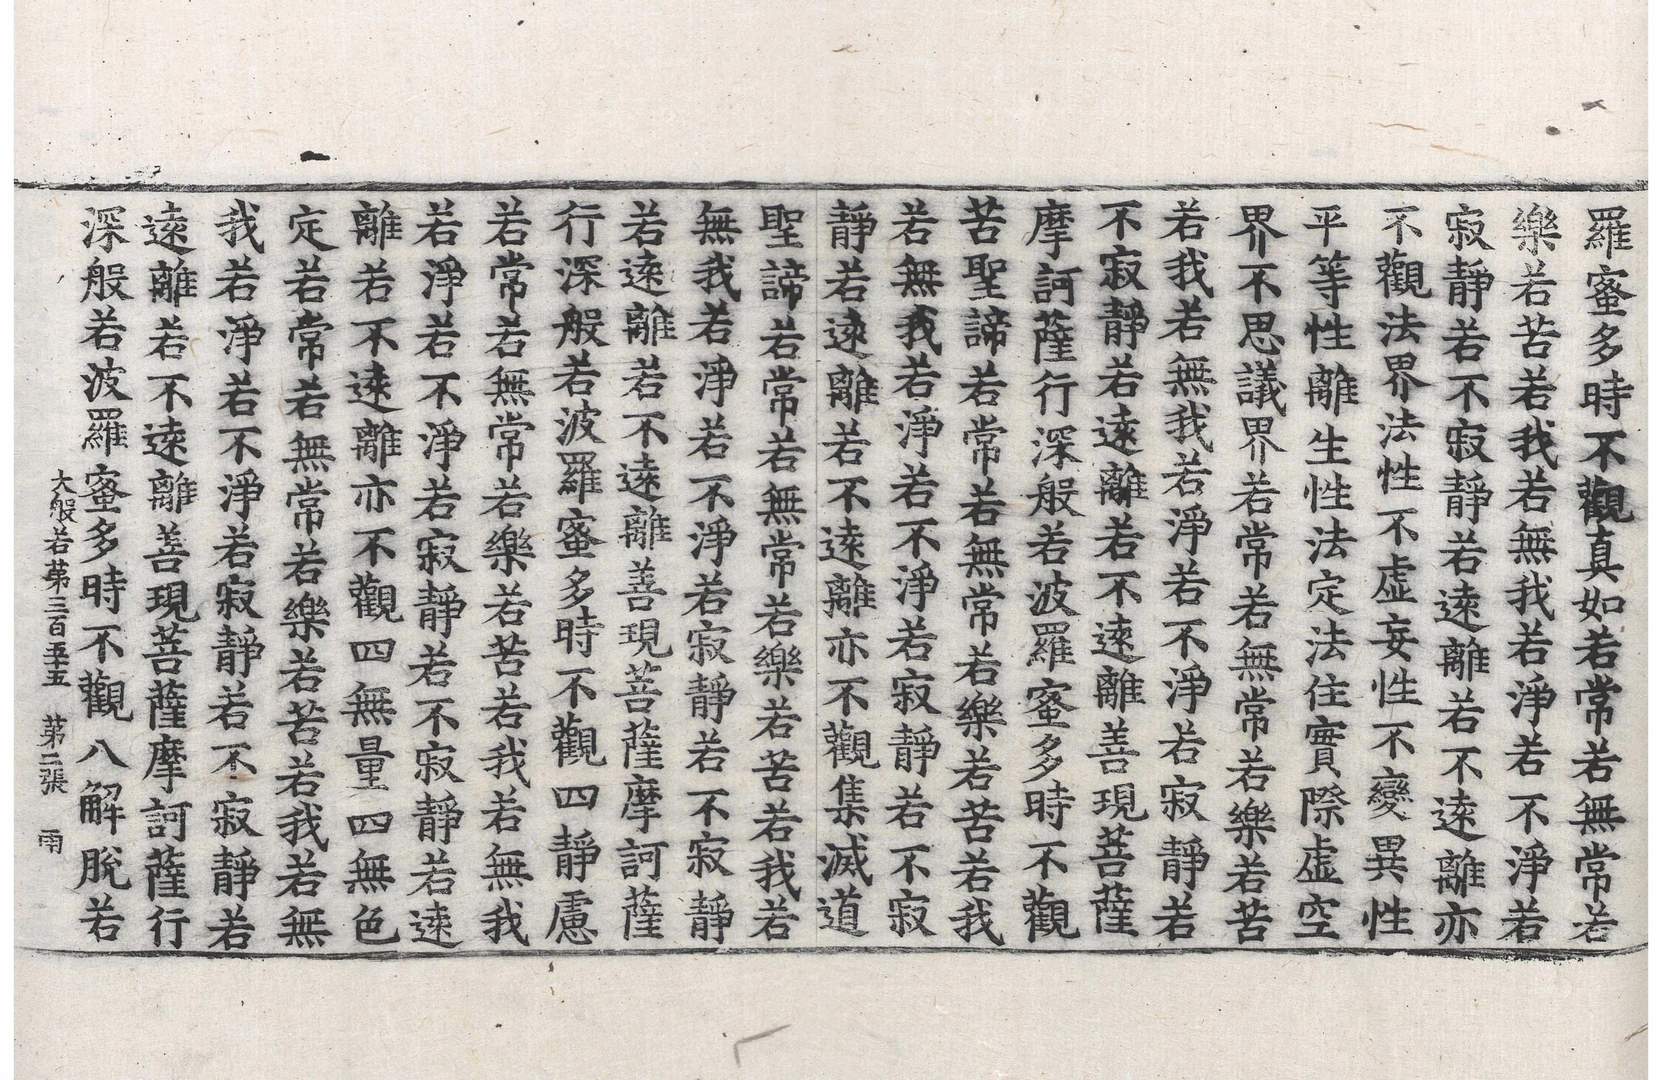 羅蜜多時不觀真如若常若無常若
樂若苦若我若無我若淨若不淨若
寂靜若不寂靜若遠離若不遠離亦
不觀法界法性不虛妄性不變異性
平等性離生性法定法住實際虛空
界不思議界若常若無常若樂若苦
若我若無我若淨若不淨若寂靜若
不寂靜若遠離若不遠離善現菩薩
摩訶薩行深般若波羅蜜多時不觀
苦聖諦若常若無常若樂若苦若我
若無我若淨若不淨若寂靜若不寂
靜若遠離若不遠離亦不觀集滅道
聖諦若常若無常若樂若苦若我若
無我若淨若不淨若寂靜若不寂靜
若遠離若不遠離善現菩薩摩訶薩
行深般若波羅蜜多時不觀四靜慮
若常若無常若樂若苦若我若無我
若淨若不淨若寂靜若不寂靜若遠
離若不遠離亦不觀四無量四無色
定若常若無常若樂若苦若我若無
我若淨若不淨若寂靜若不寂靜若
遠離若不遠離善現菩薩摩訶薩行
深般若波羅蜜多時不觀八解脫若
大般若第三百五十五 第二張 雨